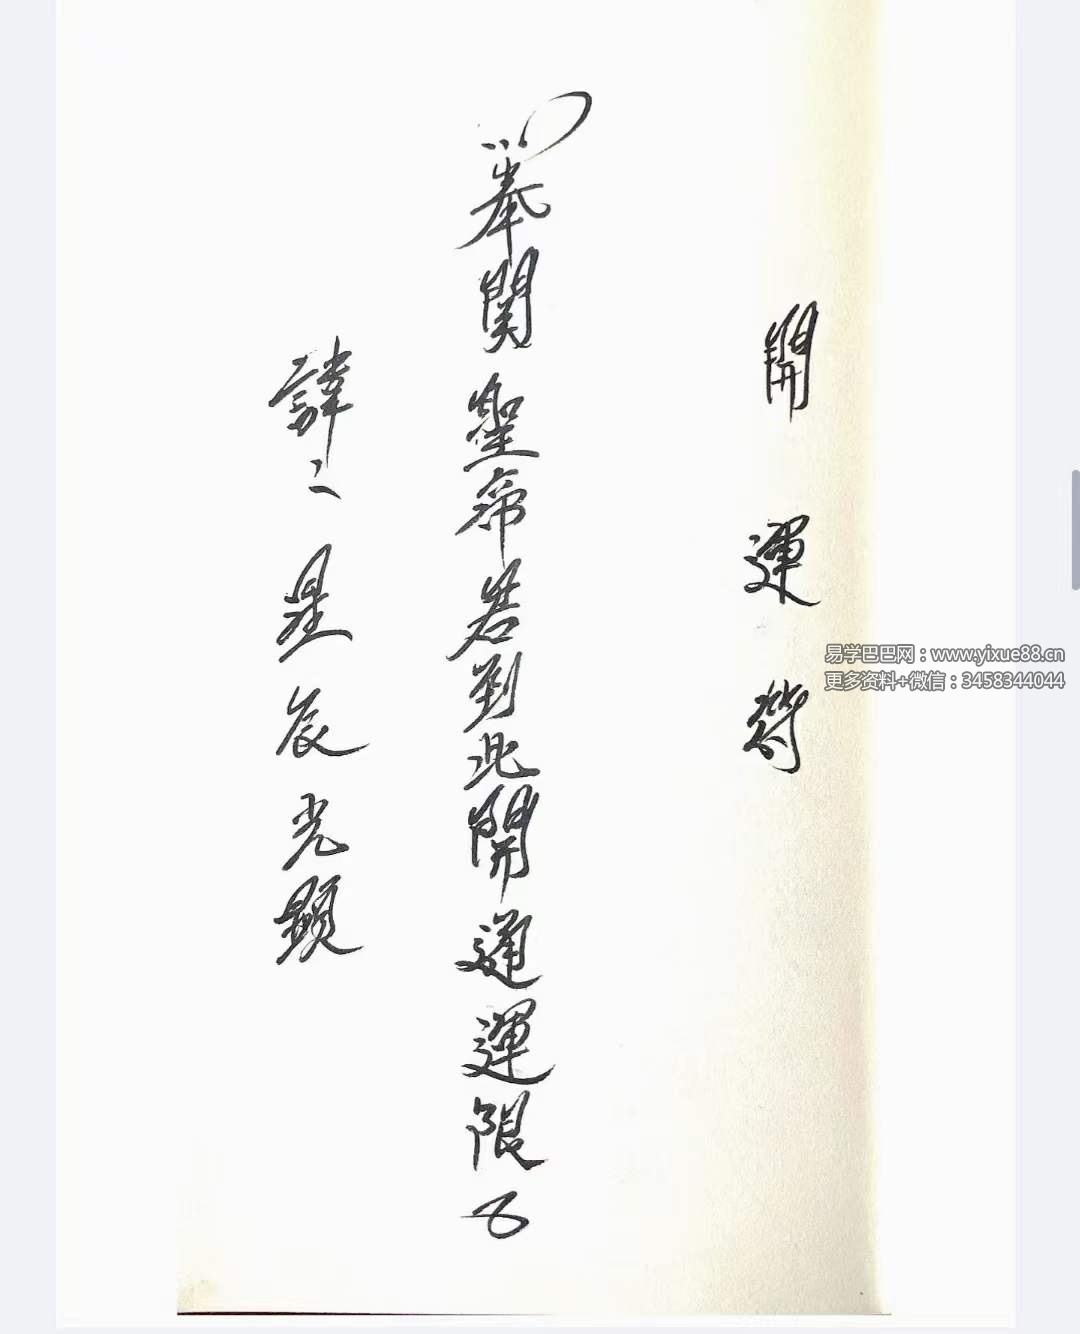 開運符
奉関聖帝君到此開通運限
諱：星辰光顯
易学巴巴网：www.yixue88.cn
更多资料+微信：3458344044